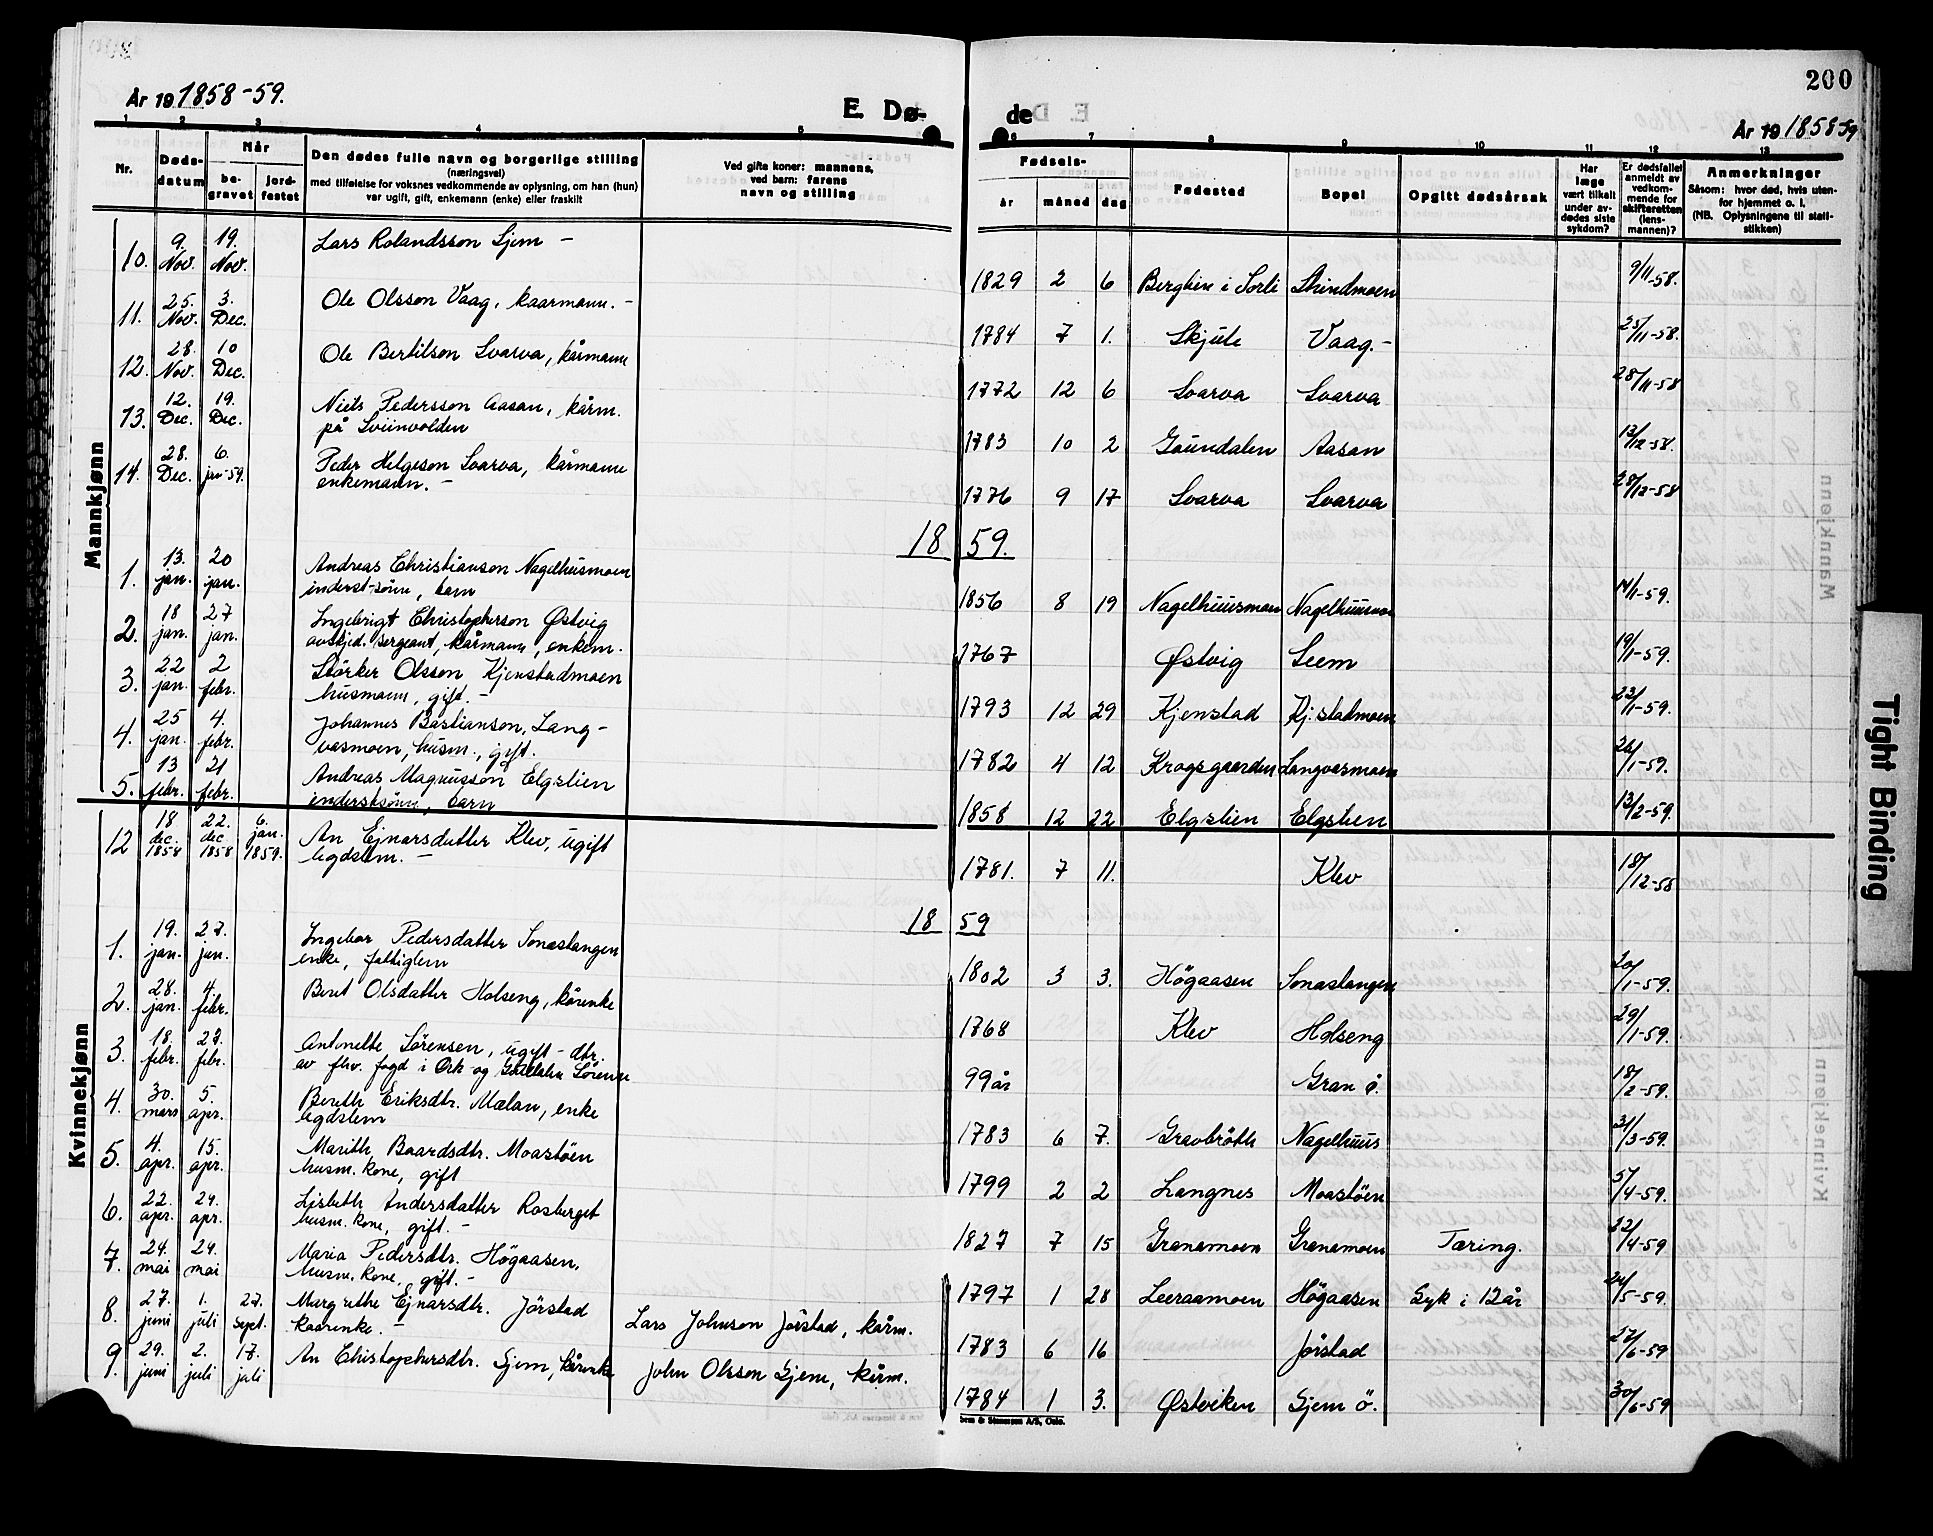 200
År 19 1858-59.
E. Dø-
de
År 19 1858-59
1 2 3 4 5 6 7 8 9 10 11 12 13
Nr.
Døds-
datum
Når
be-
gravet
jord-
festet
Den dødes fulle navn og borgerlige stilling
(næringsvei)
med tilføielse for voksnes vedkommende av oplysning, om han (hun)
var ugift, gift, enkemann (enke) eller fraskilt
Ved gifte koner: mannens,
ved barn: farens
navn og stilling
Fødsels-
år måned dag
Fødested
Bopel
Opgitt dødsårsak
Har
læge
vært tilkalt
under av-
dødes siste
sykdom?
Er dødsfallet
anmeldt av
vedkom-
mende for
skifteretten
(lens-
mannen)?
Anmerkninger
Såsom: hvor død, hvis uten-
for hjemmet o. l.
(NB. Oplysningene til stati-
stikken)
Mannkjønn
10. 9. Nov. 19. Nov. Lars Rolandsson Gjem – 1829 2 6 Berglien i Sorli Skindmoen 9/11-58.
11. 25. Nov. 3. Dec. Ole Olsson Vaag, kaarmann. – 1784 7 1. Skjüte Vaag. – 25/11-58.
12. 28. Nov. 10 Dec. Ole Bertilson Svarva, kårmann 1772 12 6 Svarva Svarva 28/11-58
13. 12. Dec. 19. Dec. Niels Pedersson Aasan, kårm.
på Sviinvolden 1783 10 2 Gaundalen Aasan 13/12-58.
14. 28. Dec. 6. jan-59. Peder Helgeson Svarva, kårmann
enkemann. – 1776 9 17 Svarva Svarva 28/12-58
1859.
1. 13. jan. 20 jan. Andreas Christianson Nagelhusmoen
inderst-sönn, barn 1856 8 19 Nagelhuusmoen Nagelhuusmoen 14/1-59.
2. 18 jan. 27 jan. Ingebrigt Christopherson Østvig
avskjed. sergeant, kårmann, enkem. 1767 Østvig Seem 19/1-59.
3. 22 jan. 2 febr. Störker Olsson Kjenstadmoen
husmann, gift. – 1793 12 29 Kjenstad Kj.stadmoen 23/1-59.
4. 25 jan. 4. febr. Johannes Bastianson, Lang-
vasmoen, husm., gift. 1782 4 12 Krogsgaarden Langvasmoen 26/1-59.
5. 13 febr. 21 febr. Andreas Magnusson Elgslien
inderstsönn, barn 1858 12 22 Elgslien Elgslien 13/2-59.
Kvinnekjønn
12 18 dec. 1858 22. dec 1858 6. jan. 1859. An Ejnarsdatter Klev, ugift
legdslem. – 1781. 7 11. Klev 18/12-58
1859
1. 19. jan. 27. jan. Ingebor Pedersdatter Sonastangen
enke, fattiglem 1802 3 3. Högaasen Sonastangen 20/1-59.
2. 28. jan. 4. febr. Beret Olsdatter Holseng, kårenke 1768 Klev Holseng 29/1-59.
3. 18. febr. 27. febr. Antonette Sörensen, ugift – dtr.
av fhv. fogd i Ork- og Guldalen Sörensen 99 år Gran ö. 18/2-59.
4. 30. mars 5. apr. Bereth Eriksdtr. Mælan, enke
legdslem 1783 6 7. Gravbröth Nagelhuus 31/3-59.
5. 4. apr. 15. apr. Marith Baardsdtr. Moastöen
husm. kone, gift 1799 2 2 Langnes Moastöen 5/4-59.
6. 22. apr. 29. apr. Lisbeth Andersdatter Rosberget
husm. kone, gift. – 1827 7 15 Granamoen Granamoen Tæring. 22/4-59
7. 24. mai 29. mai Maria Pedersdtr. Högaasen,
husm. kone, gift. – 1797 1 28 Leeraamoen Högaasen Syk i 12 år 24/5-59.
8. 27. juni 1. juli 27. sept. Margrethe Ejnarsdtr. Jörstad
kaarenke. – Lars Johnson Jörstad, kårm. 1783 6 16 Jörstad 27/6-59
9. 29. juni 2. juli 17. juli An Christophersdtr. Gjem, kårenke John Olsson Gjem, kårm. 1784 1 3. Østviken Gjem ö. 30/6-59
Tight Binding